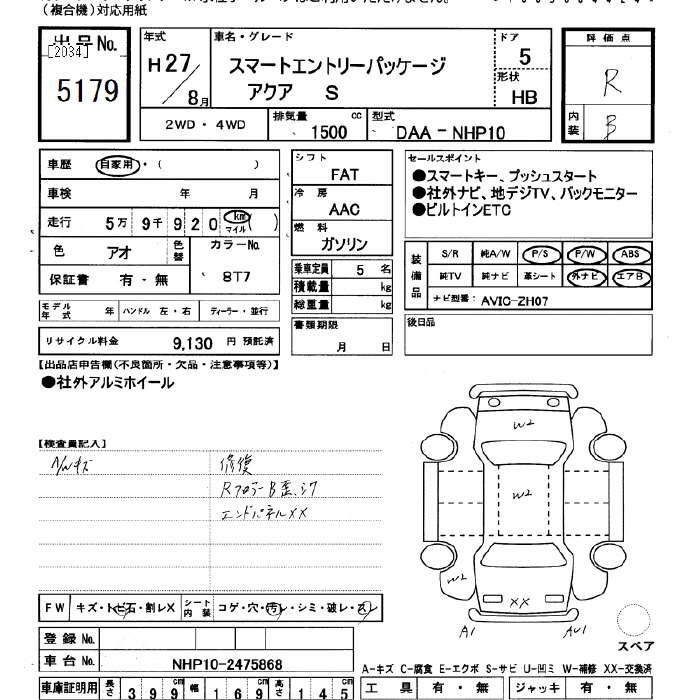 (複合機)対応用紙
出品No.
[2034]
5179
年式
H27
8月
車名・グレード
スマートエントリーパッケージ
アクア S
ドア
5
形状
HB
評価点
R
内装
B
2WD・4WD
排気量
1500 cc
型式
DAA-NHP10
車歴 自家用・( )
車検 年 月
走行 5万 9千 9 2 0 km マイル ( )
色 アオ 色替 カラーNo.
8T7
保証書 有・無
モデル年式 年 ハンドル 左・右 ディーラー・並行
リサイクル料金 9,130 円 預託済
シフト
FAT
冷房
AAC
燃料
ガソリン
乗車定員 5 名
積載量 kg
総重量 kg
書類期限
月 日
セールスポイント
●スマートキー、プッシュスタート
●社外ナビ、地デジTV、バックモニター
●ビルトインETC
装備品
S/R 純A/W P/S P/W ABS
純TV 純ナビ 革シート 外ナビ エアB
ナビ型番: AVIC-ZH07
後日品
【出品店申告欄(不良箇所・欠品・注意事項等)】
●社外アルミホイール
【検査員記入】
修復
エンドパネルXX
W2
W2
W2
XX
A1
スペア
FW キズ・トビ石・割レX シート内装 コゲ・穴・汚レ・シミ・破レ・スレ
登録No.
車台No. NHP10-2475868
車庫証明用 長さ 399 cm 幅 169 cm 高さ 145 cm
A-キズ C-腐食 E-エクボ S-サビ U-凹ミ W-補修 XX-交換済
工具 有・無 ジャッキ 有・無